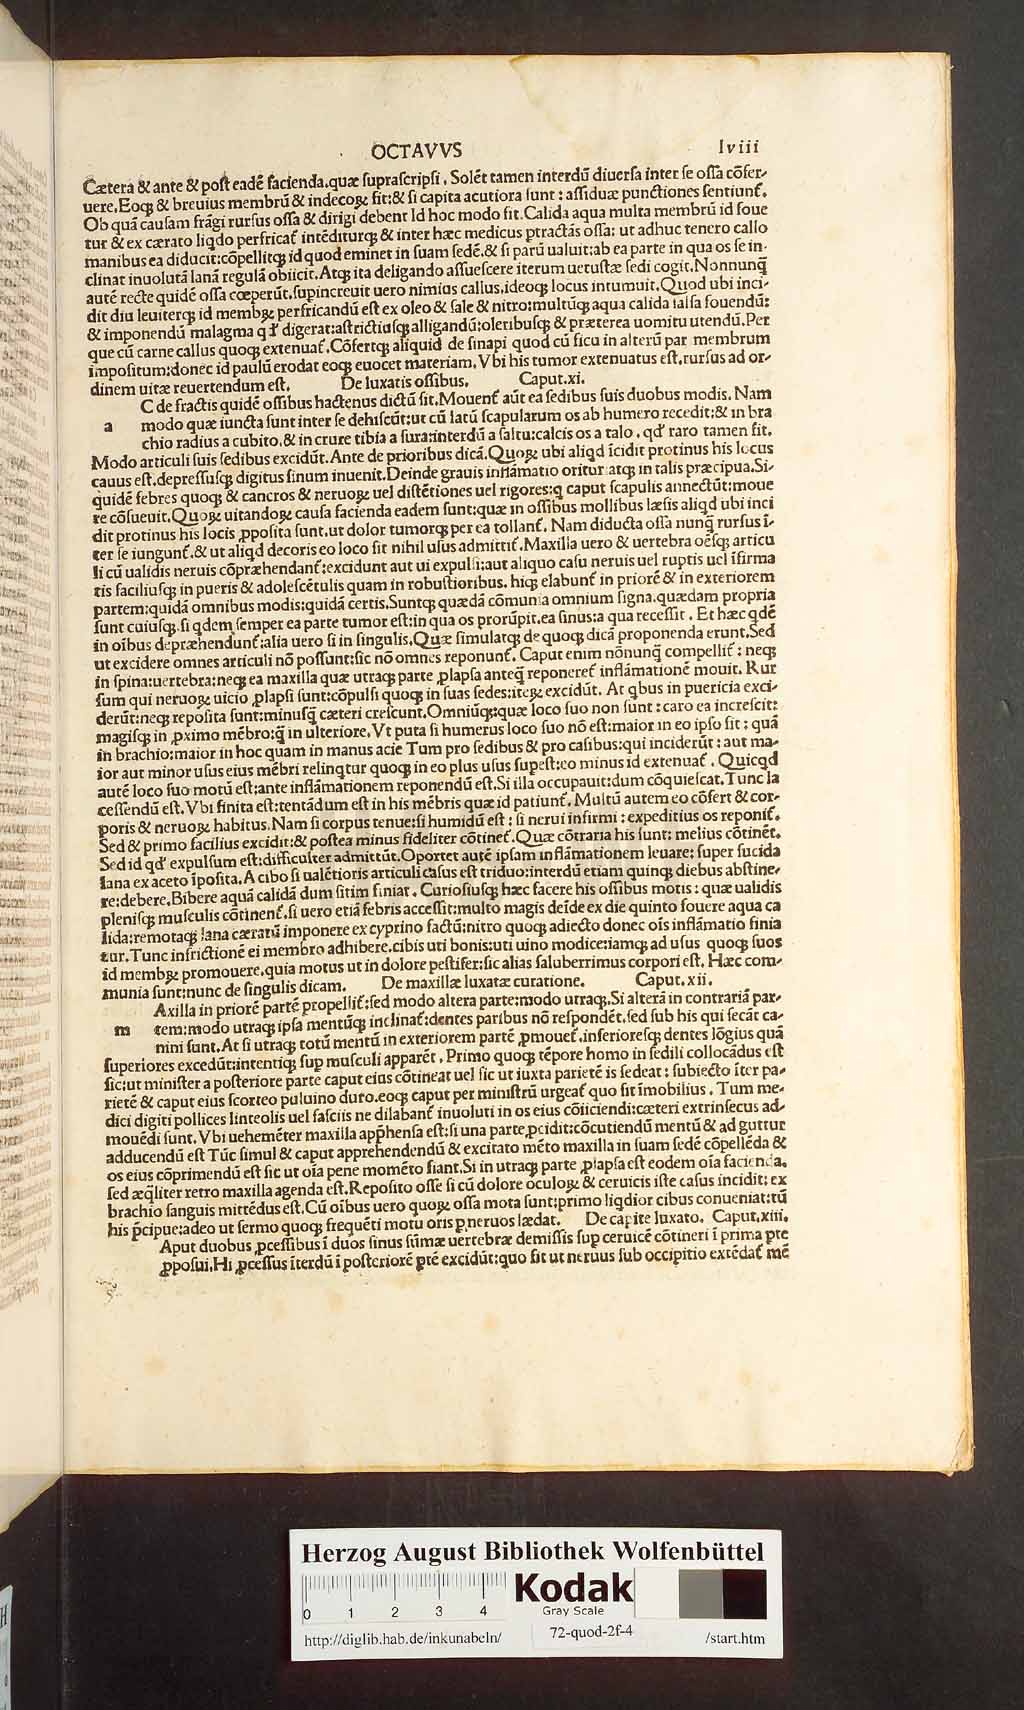 OCTAVVS lviii
Cætera & ante & post eadē facienda.quæ suprascripsi. Solēt tamen interdū diuersa inter se ossa cōfer-
uere.Eoqꝫ & breuius membrū & indecoꝝ fit:& si capita acutiora sunt: assiduæ punctiones sentiunt᷑.
Ob quā causam frāgi rursus ossa & dirigi debent Id hoc modo fit.Calida aqua multa membrū id foue
tur & ex cærato liqdo perfricat᷑ intēditurqꝫ & inter hæc medicus ptractās ossa: ut adhuc tenero callo
manibus ea diducit:cōpellitqꝫ id quod eminet in suam sedē.& si parū ualuit:ab ea parte in qua os se in-
clinat inuolutā lanā regulā obiicit.Atqꝫ ita deligando assuescere iterum uetustæ sedi cogit.Nonnunq̄
autē recte quidē ossa cœperūt.supincreuit uero nimius callus.ideoqꝫ locus intumuit.Quod ubi inci-
dit diu leuiterqꝫ id membꝝ perfricandū est ex oleo & sale & nitro:multūqꝫ aqua calida salsa fouendū:
& imponendū malagma qd̕ digerat:astrictiusqꝫ alligandū:oleribusqꝫ & præterea uomitu utendū.Per
que cū carne callus quoqꝫ extenuat᷑.Cōfertqꝫ aliquid de sinapi quod cū ficu in alterū par membrum
impositum:donec id paulū erodat eoqꝫ euocet materiam.Vbi his tumor extenuatus est.rursus ad or-
dinem uitæ reuertendum est. De luxatis ossibus. Caput.xi.
C de fractis quidē ossibus hactenus dictū sit.Mouent᷑ aūt ea sedibus suis duobus modis. Nam
a modo quæ iuncta sunt inter se dehiscūt:ut cū latū scapularum os ab humero recedit:& in bra
chio radius a cubito.& in crure tibia a sura:interdū a saltu:calcis os a talo. qd̕ raro tamen fit.
Modo articuli suis sedibus excidūt.Ante de prioribus dicā.Quoꝝ ubi aliqd īcidit protinus his locus
cauus est.depressusqꝫ digitus sinum inuenit.Deinde grauis inflāmatio oritur atqꝫ in talis præcipua.Si-
quidē febres quoqꝫ & cancros & neruoꝝ uel distētiones uel rigores:q caput scapulis annectūt:moue
re cōsueuit.Quoꝝ uitandoꝝ causa facienda eadem sunt:quæ in ossibus mollibus læsis aliqd ubi inci
dit protinus his locis ꝓposita sunt.ut dolor tumorqꝫ per ea tollant᷑. Nam diducta ossa nunq̄ rursus ī-
ter se iungunt᷑.& ut aliqd decoris eo loco fit nihil usus admittit᷑.Maxilla uero & uertebra oēsqꝫ articu
li cū ualidis neruis cōpræhendant᷑:excidunt aut ui expulsi:aut aliquo casu neruis uel ruptis uel īfirma
tis faciliusqꝫ in pueris & adolescētulis quam in robustioribus. hiqꝫ elabunt᷑ in priorē & in exteriorem
partem:quidā omnibus modis:quidā certis.Suntqꝫ quædā cōmunia omnium signa.quædam propria
sunt cuiusqꝫ.si qdem semper ea parte tumor est:in qua os prorūpit.ea sinus:a qua recessit. Et hæc qdē
in oībus depræhendunt᷑:alia uero si in singulis.Quæ simulatqꝫ de quoqꝫ dicā proponenda erunt.Sed
ut excidere omnes articuli nō possunt:sic nō omnes reponunt᷑. Caput enim nōnunq̄ compellit᷑: neqꝫ
in spina:uertebra:neqꝫ ea maxilla quæ utraqꝫ parte ꝓlapsa anteq̄ reponeret᷑ inflāmationē mouit. Rur
sum qui neruoꝝ uicio ꝓlapsi sunt:cōpulsi quoqꝫ in suas sedes:iteꝝ excidūt. At qbus in puericia exci-
derūt:neqꝫ reposita sunt:minusq̄ cæteri crescunt.Omniūqꝫ:quæ loco suo non sunt: caro ea increscit:
magisqꝫ in ꝓximo mēbro:q̄ in ulteriore.Vt puta si humerus loco suo nō est:maior in eo ipso fit: quā
in brachio:maior in hoc quam in manus acie Tum pro sedibus & pro casibus:qui inciderūt: aut ma-
ior aut minor usus eius mēbri relinqtur quoqꝫ in eo plus usus supest:eo minus id extenuat᷑. Quicqd
autē loco suo motū est:ante inflāmationem reponendū est.Si illa occupauit:dum cōquiescat.Tunc la
cessendū est.Vbi finita est:tentādum est in his mēbris quæ id patiunt᷑. Multū autem eo cōfert & cor-
poris & neruoꝝ habitus.Nam si corpus tenue:si humidū est: si nerui infirmi: expeditius os reponit᷑.
Sed & primo facilius excidit:& postea minus fideliter cōtinet᷑.Quæ cōtraria his sunt: melius cōtinēt.
Sed id qd̕ expulsum est:difficulter admittūt.Oportet autē ipsam inflāmationem leuare: super sucida
lana ex aceto īposita.A cibo si ualētioris articuli casus est triduo:interdū etiam quinqꝫ diebus abstine-
re:debere.Bibere aquā calidā dum sitim finiat. Curiosiusqꝫ hæc facere his ossibus motis: quæ ualidis
plenisqꝫ musculis cōtinent᷑.si uero etiā febris accessit:multo magis deīde ex die quinto fouere aqua ca
lida:remotaqꝫ lana cæratū imponere ex cyprino factū:nitro quoqꝫ adiecto donec oīs inflāmatio finia
tur.Tunc infrictionē ei membro adhibere.cibis uti bonis:uti uino modice:iamqꝫ ad usus quoqꝫ suos
id membꝝ promouere.quia motus ut in dolore pestifer:sic alias saluberrimus corpori est. Hæc com-
munia sunt:nunc de singulis dicam. De maxillæ luxatæ curatione. Caput.xii.
Axilla in priorē partē propellit᷑:sed modo altera parte:modo utraqꝫ.Si alterā in contrariā par-
m tem:modo utraqꝫ ipsa mentūqꝫ inclinat᷑:dentes paribus nō respondēt.sed sub his qui secāt ca-
nini sunt.At si utraqꝫ totū mentū in exteriorem partē ꝓmouet᷑.inferioresqꝫ dentes lōgius quā
superiores excedūt:intentiqꝫ sup musculi apparēt. Primo quoqꝫ tēpore homo in sedili collocādus est
sic:ut minister a posteriore parte caput eius cōtineat uel sic ut iuxta parietē is sedeat: subiecto īter pa-
rietē & caput eius scorteo puluino duro.eoqꝫ caput per ministrū urgeat᷑ quo sit īmobilius. Tum me-
dici digiti pollices linteolis uel fasciis ne dilabant᷑ inuoluti in os eius cōiiciendi:cæteri extrinsecus ad-
mouēdi sunt.Vbi uehemēter maxilla app̄hensa est:si una parte ꝓcidit:cōcutiendū mentū & ad guttur
adducendū est Tūc simul & caput apprehendendū & excitato mēto maxilla in suam sedē cōpellēda &
os eius cōprimendū est sic ut oīa pene momēto fiant.Si in utraqꝫ parte ꝓlapsa est eodem oīa facienda.
sed æq̄liter retro maxilla agenda est.Reposito osse si cū dolore oculoꝝ & ceruicis iste casus incidit: ex
brachio sanguis mittēdus est.Cū oībus uero quoꝝ ossa mota sunt:primo liqdior cibus conueniat:tū
his p̄cipue:adeo ut sermo quoqꝫ frequēti motu oris p neruos lædat. De capite luxato. Caput.xiii.
Aput duobus ꝓcessibus ī duos sinus sūmæ uertebræ demissis sup ceruicē cōtineri ī prima pte
ꝓposui.Hi ꝓcessus īterdū ī posteriorē ptē excidūt:quo fit ut neruus sub occipitio extēdat᷑ mē
Herzog August Bibliothek Wolfenbüttel
0 1 2 3 4
Kodak
Gray Scale
http://diglib.hab.de/inkunabeln/ 72-quod-2f-4 /start.htm